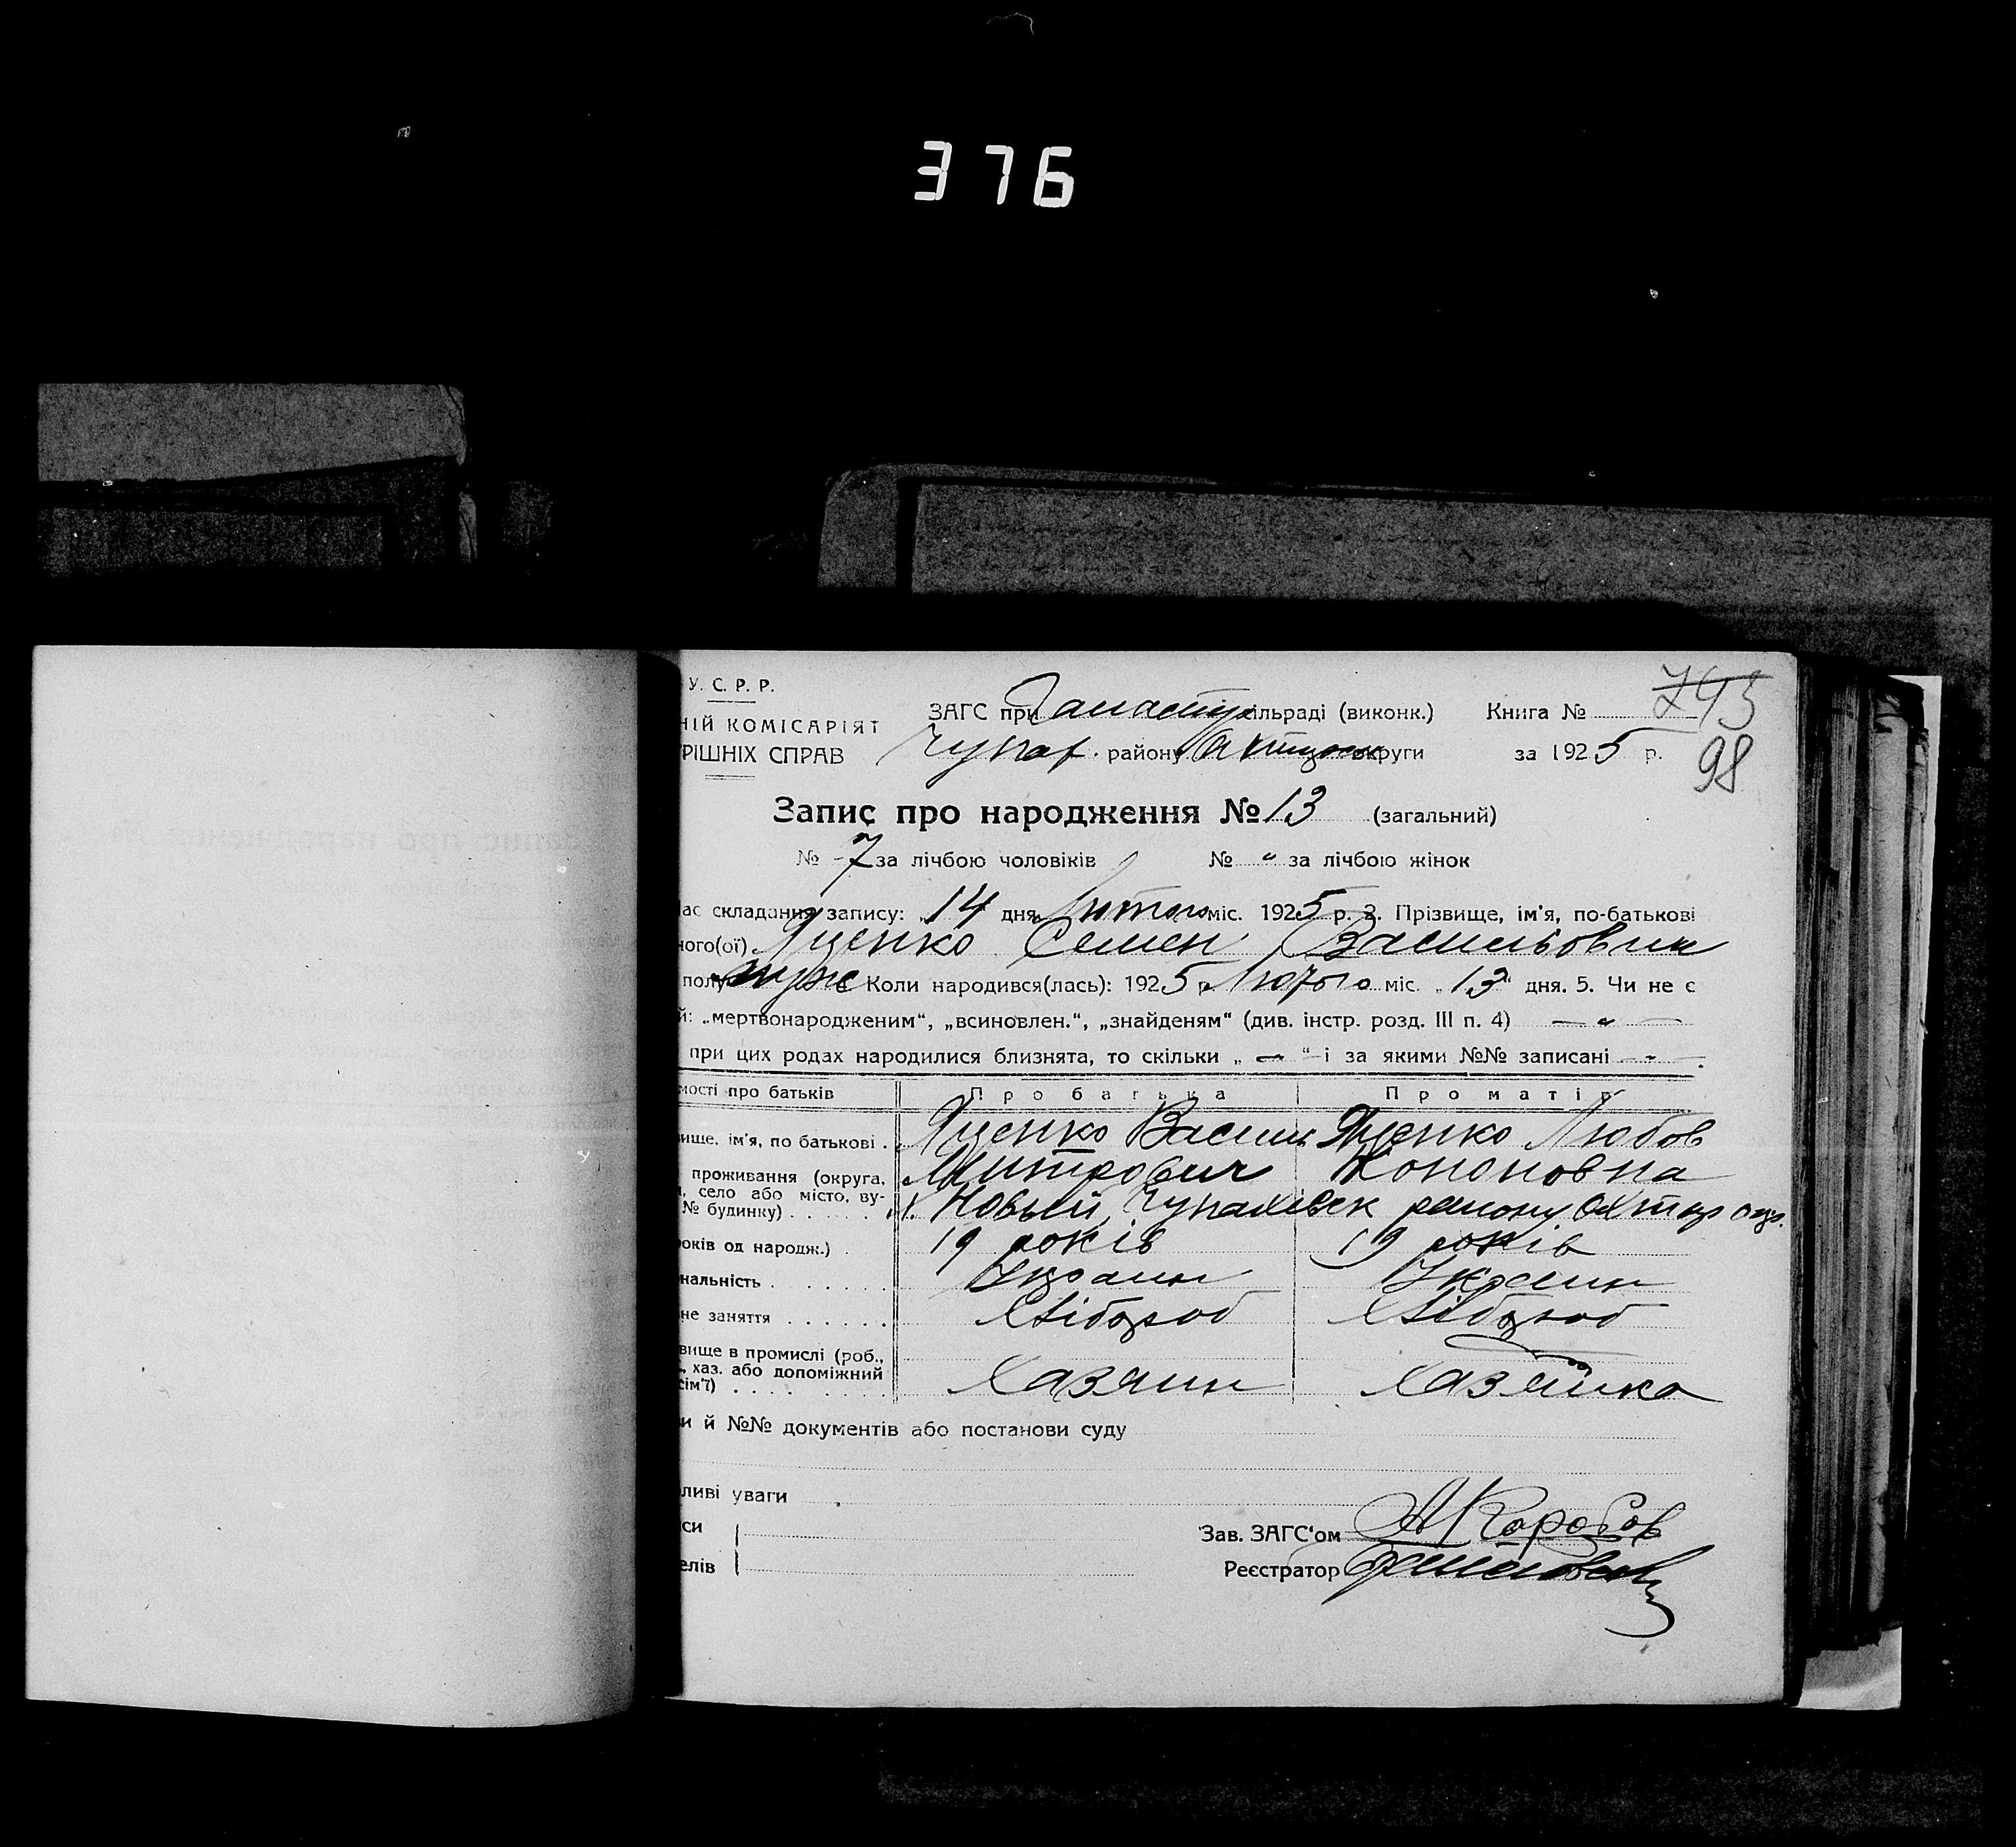 376
У. С. Р. Р.
ЗАГС при сільраді (виконк.) Книга № 743
НІЙ КОМІСАРІЯТ
РІШНІХ СПРАВ Чупах. району Охтирськ округи за 1925 р. 98
Запис про народження № 13 (загальний)
№ 7 за лічбою чоловіків № " за лічбою жінок
час складання запису: „14 дня Лютого міс. 1925 р. 2. Прізвище, ім'я, по-батькові
ного(ої) Яценко Семен Васильович
полу муж Коли народився(лась): 1925 р. Лютого міс. „13" дня. 5. Чи не є
й: „мертвонародженим“, „всиновлен.“, „знайденям“ (див. інстр. розд. III п. 4) — „ —
при цих родах народилися близнята, то скільки „ — “ і за якими №№ записані - - -
мості про батьків Про батька Про матір
вище, ім'я, по батькові . Яценко Василь Яценко Любов
Митрович Кононовна
проживання (округа,
, село або місто, ву-
№ будинку) . . . . . х. Новый, Чупахівск району Охтир окр.
років од народж.) . 19 років 19 років
нальність . . . . . . Украин Украин
не заняття . . . . . . Хлібороб Хлібороб
вище в промислі (роб.,
, хаз. або допоміжний
сім'ї) . . . . . . . . Хазяин Хазяйка
и й №№ документів або постанови суду
ливі уваги
си
Зав. ЗАГС'ом
елів
Реєстратор